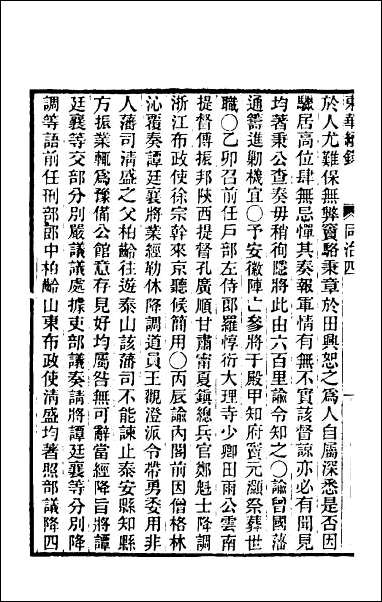 東華續錄 同治四
於人尤難保無弊竇駱秉章於田興恕之爲人自屬深悉是否因
驟居高位肆無忌憚其奏報軍情有無不實該督諒亦必有聞見
均著秉公查奏毋稍徇隱將此由六百里諭令知之○諭曾國藩
通籌進勦機宜○予安徽陣亡參將于殿甲知府賓元灝祭葬世
職○乙卯召前任戶部左侍郎羅惇衍大理寺少卿田雨公雲南
提督傅振邦陝西提督孔廣順甘肅甯夏鎮總兵官鄭魁士降調
浙江布政使徐宗幹來京聽候簡用○丙辰諭內閣前因僧格林
沁覆奏譚廷襄將業經勒休降調道員王觀澄派令帶勇委用非
人藩司清盛之父柏齡往遊泰山該藩司不能諫止泰安縣知縣
方振業輒爲豫備公館意存見好均屬咎無可辭當經降旨將譚
廷襄等交部分別嚴議議處據吏部議奏請將譚廷襄等分別降
調等語前任刑部郎中柏齡山東布政使清盛均著照部議降四